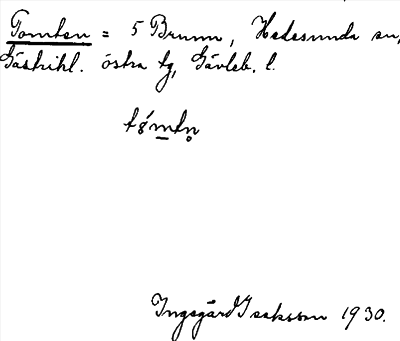 Tomten = 5 Brunn, Hedesunda sn,
Gästrikl. östra tg, Gävleb. l.
tǿmtn̥
Ingegärd Isaksson 1930.